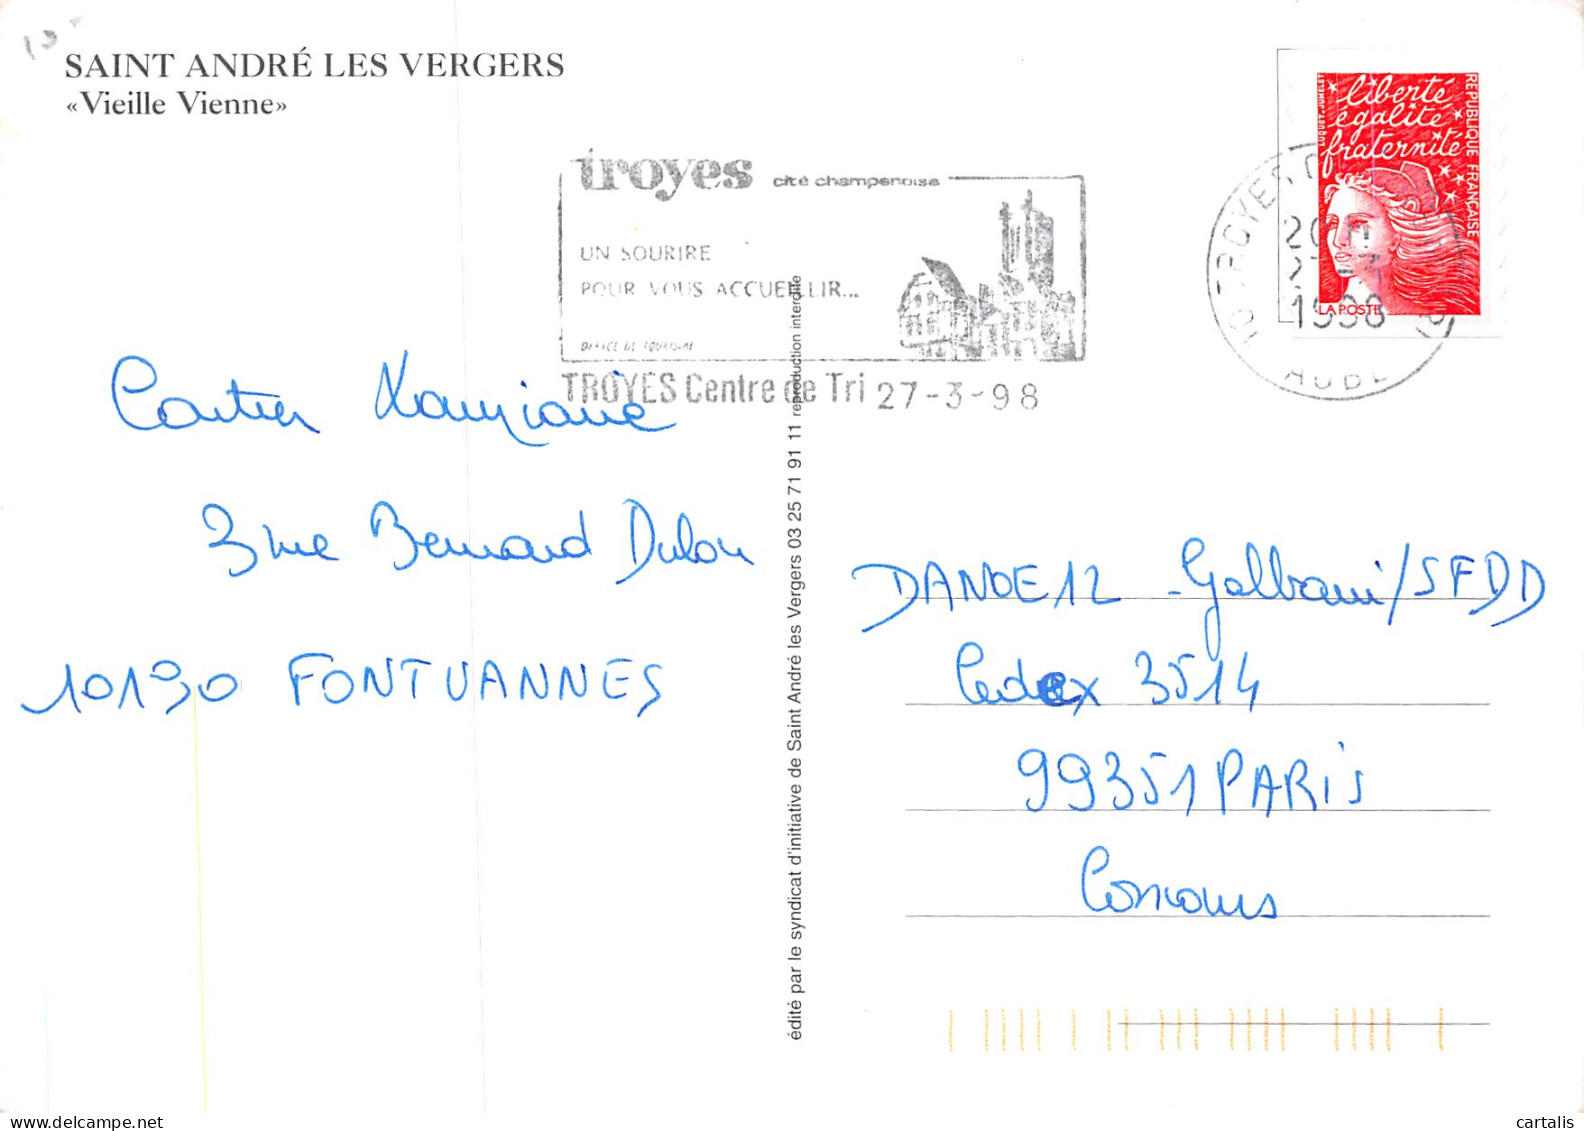 SAINT ANDRÉ LES VERGERS
«Vieille Vienne»
troyes cité champenoise
UN SOURIRE
POUR VOUS ACCUEILLIR...
OFFICE DE TOURISME
TROYES Centre de Tri 27-3-98
liberté
égalité
fraternité
RÉPUBLIQUE FRANÇAISE
LUQUET-JUMELET
LA POSTE
10 TROYES
1998
AUBE
Cartier
3 rue Bernard Dulou
10190 FONTVANNES
édité par le syndicat d'initiative de Saint André les Vergers 03 25 71 91 11 reproduction interdite
DANOE12 - Galbani/SFDD
Cedex 3514
99351 PARIS
Concours
cartalis